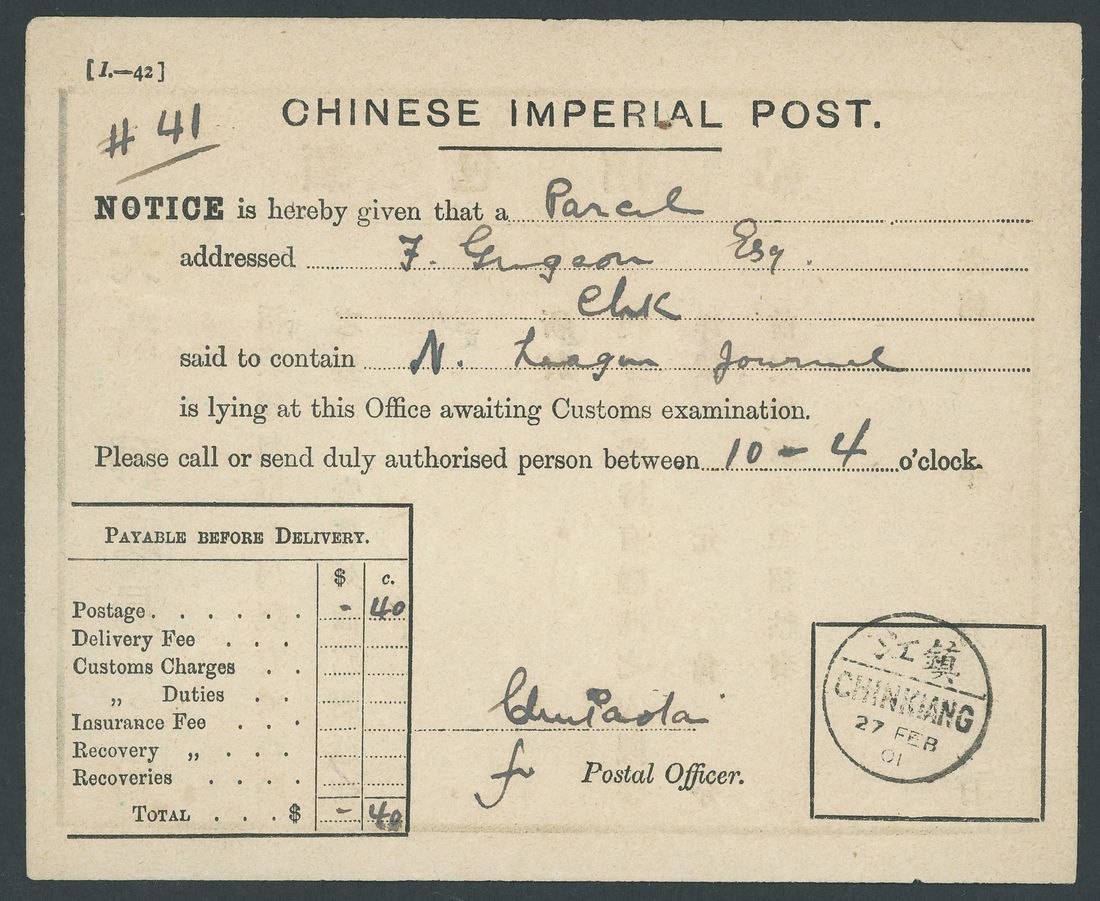 [I.—42]
# 41
CHINESE IMPERIAL POST.
NOTICE is hereby given that a Parcel
addressed F. Grugeon Esq.
said to contain N. League Journal
is lying at this Office awaiting Customs examination.
Please call or send duly authorised person between 10 - 4 o'clock.
PAYABLE BEFORE DELIVERY.
$ c.
Postage . . . . . . - 40
Delivery Fee . . .
Customs Charges . .
„ Duties . .
Insurance Fee . . .
Recovery „ . . .
Recoveries . . . .
TOTAL . . . $ - 40
f Postal Officer.
江鎮
CHINKIANG
27 FEB
01